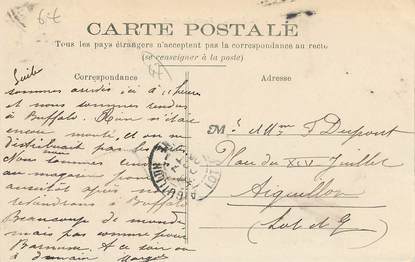 6€
CARTE POSTALE
Tous les pays étrangers n'acceptent pas la correspondance au recto
(se renseigner à la poste)
Correspondance
Adresse
47
Suite
sommes arrivés ici à heures
et nous sommes rendus
à Buffalo. Rien n'était
encore monté, et on ne
distribuait pas les
Nous sommes
au magasin pour
aussitôt après
à Buffalo
Beaucoup de monde
mais pas comme pour
Barnum. A ce soir ou
à demain
M. et Mme Dupont
Place du XIV Juillet
Aiguillon
(Lot et G)
AIGUILLON
LOT